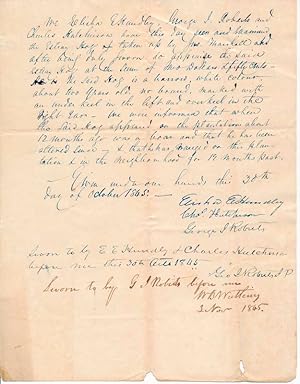 We Elisha E Hundley, George I. Roberts and
Charles Hutchinson have this day seen and examined
the Estray Hog taken up by Jno. Marshall and
after being duly sworn to appraise the said
estray Hog at the sum of Two Dollars & fifty Cents
the said Hog is a barrow, white colour,
about two years old no horned, marked with
an under keel in the left and overkeel in the
Right Ear. We were informed that when
the said Hog appeared on the plantation about
12 months ago was a boar and that he has been
altered since & that he has ranged on this plan-
tation & in the neighborhood for 12 months past.
Given under our hands this 30th
day of October 1865.
Elisha E Hundley
Chas Hutchinson
George I Roberts
Sworn to by E E Hundley & Charles Hutchinson
before me this 30th Octo 1865
Geo D Roberts J P
Sworn to by G I Roberts before me
3 Nov 1865.